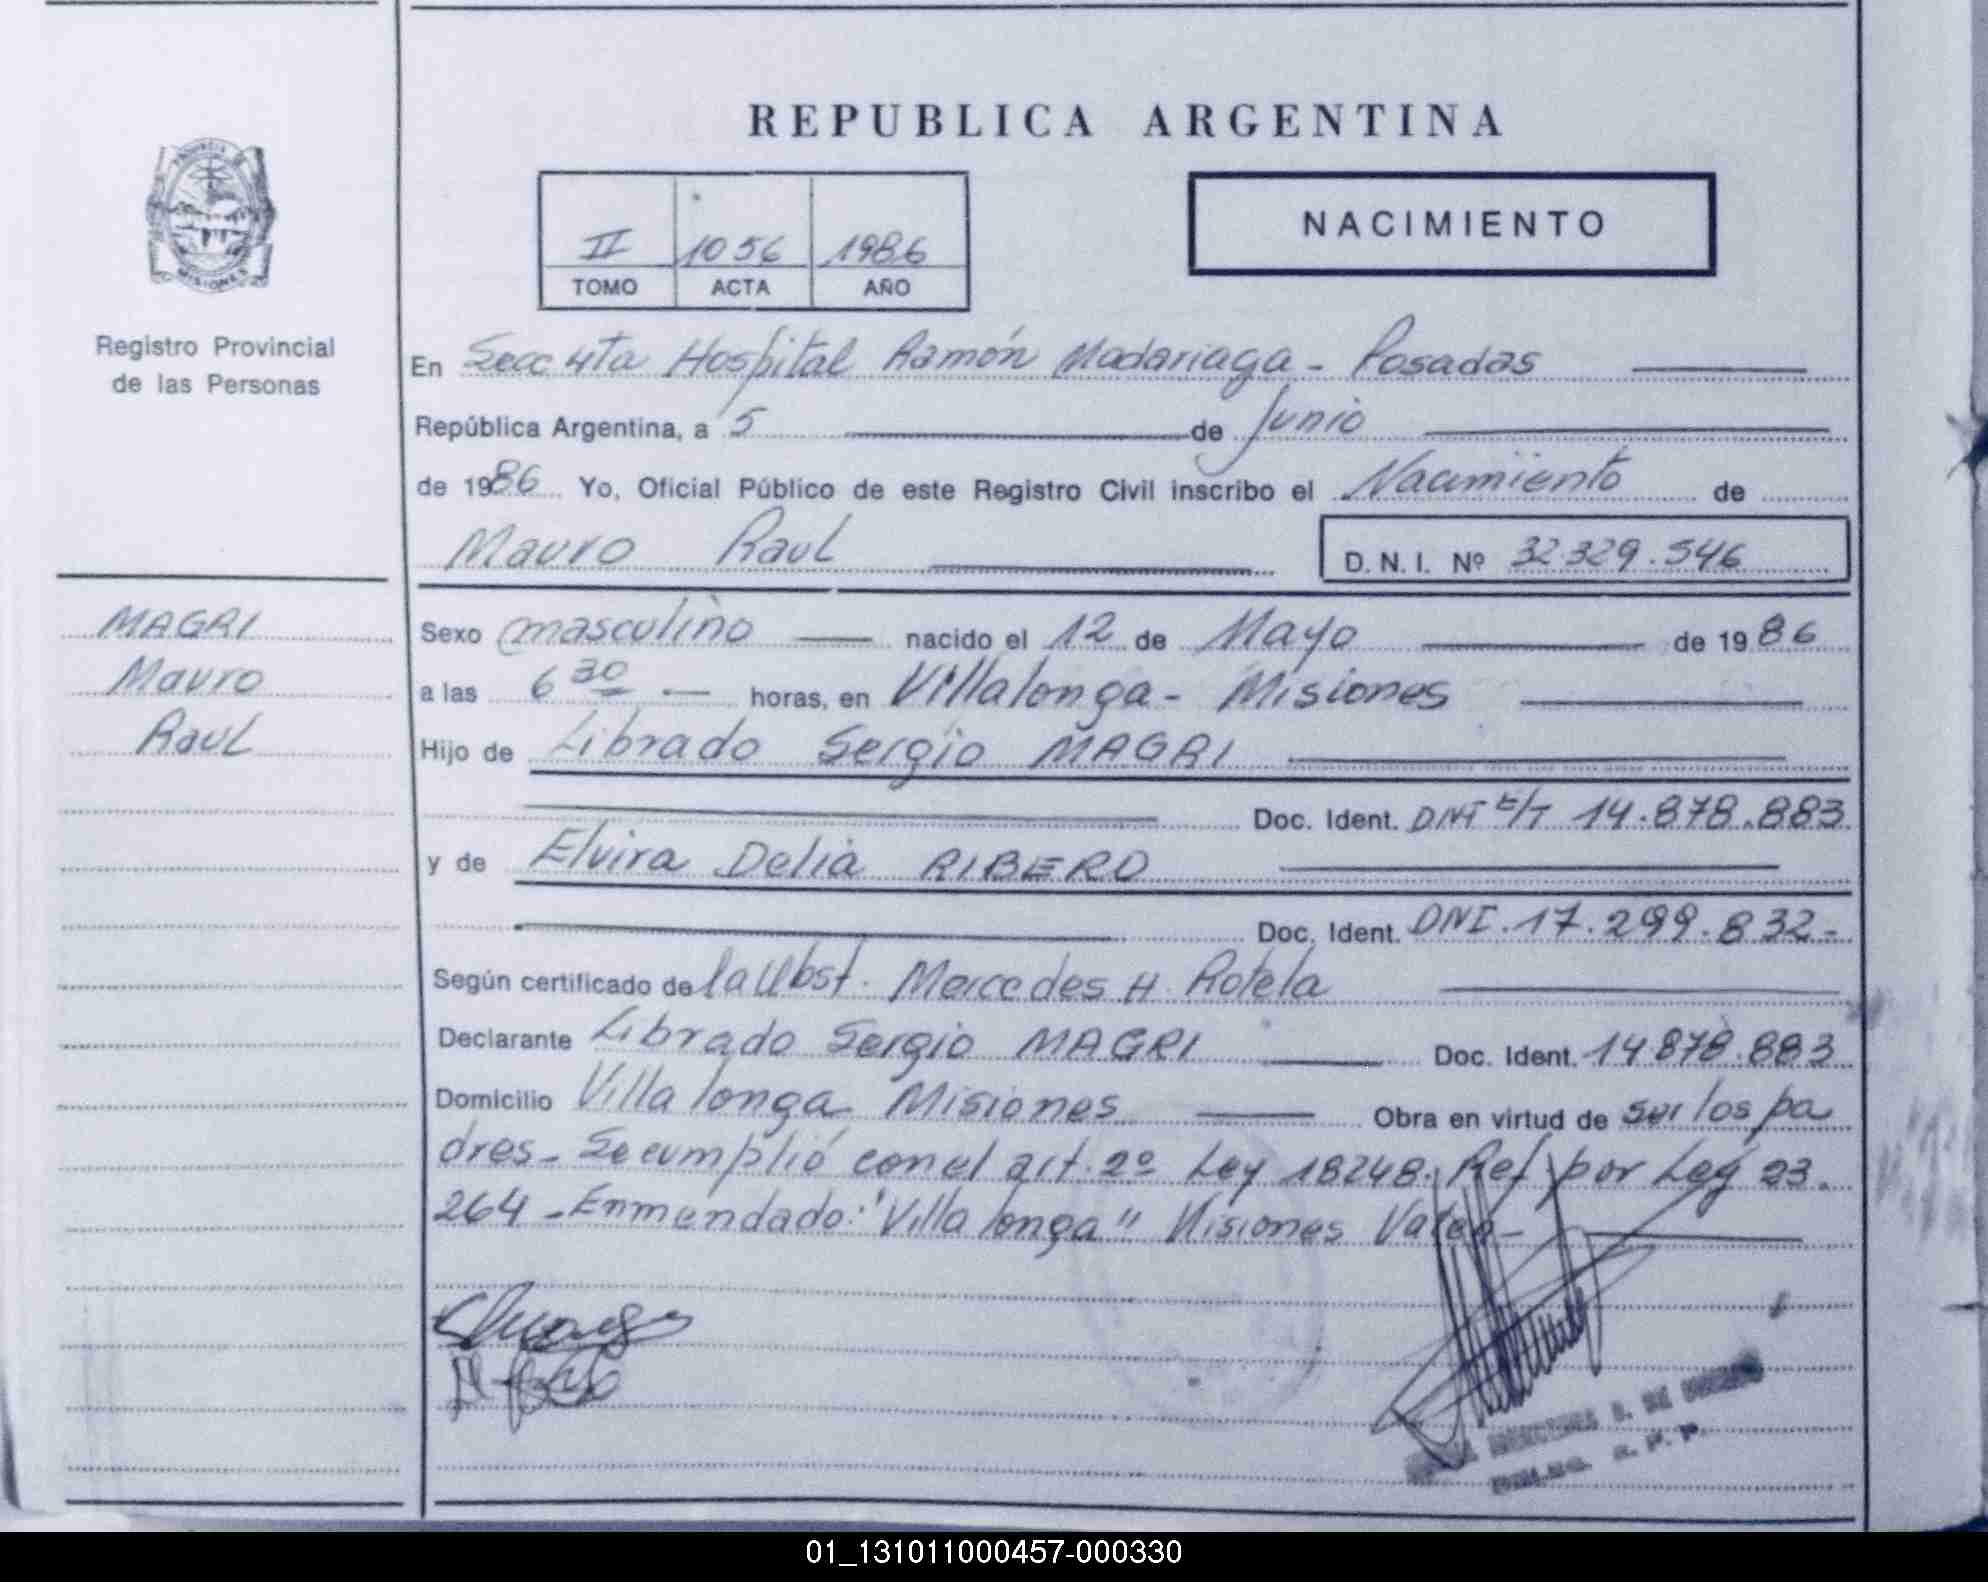 REPUBLICA ARGENTINA
PROVINCIA DE
MISIONES
II 1056 1986
TOMO ACTA AÑO
NACIMIENTO
Registro Provincial
de las Personas
En Secc 4ta Hospital Ramón Madariaga - Posadas
República Argentina, a 5 de Junio
de 1986 Yo, Oficial Público de este Registro Civil inscribo el Nacimiento de
Mauro Raul D.N.I. Nº 32.329.546
MAGRI
Mauro
Raul
Sexo masculino nacido el 12 de Mayo de 1986
a las 6 30 horas, en Villalonga - Misiones
Hijo de Librado Sergio MAGRI
Doc. Ident. DNI E/T 14.878.883
y de Elvira Delia RIBERO
Doc. Ident. DNI. 17.299.832-
Según certificado de la Obst. Mercedes H. Rotela
Declarante Librado Sergio MAGRI Doc. Ident. 14878.883
Domicilio Villa longa Misiones Obra en virtud de ser los pa
dres - Se cumplió con el art. 2º Ley 18248. Ref por Ley 23.
264 - Enmendado: "Villa longa" Misiones Vale
01_131011000457-000330